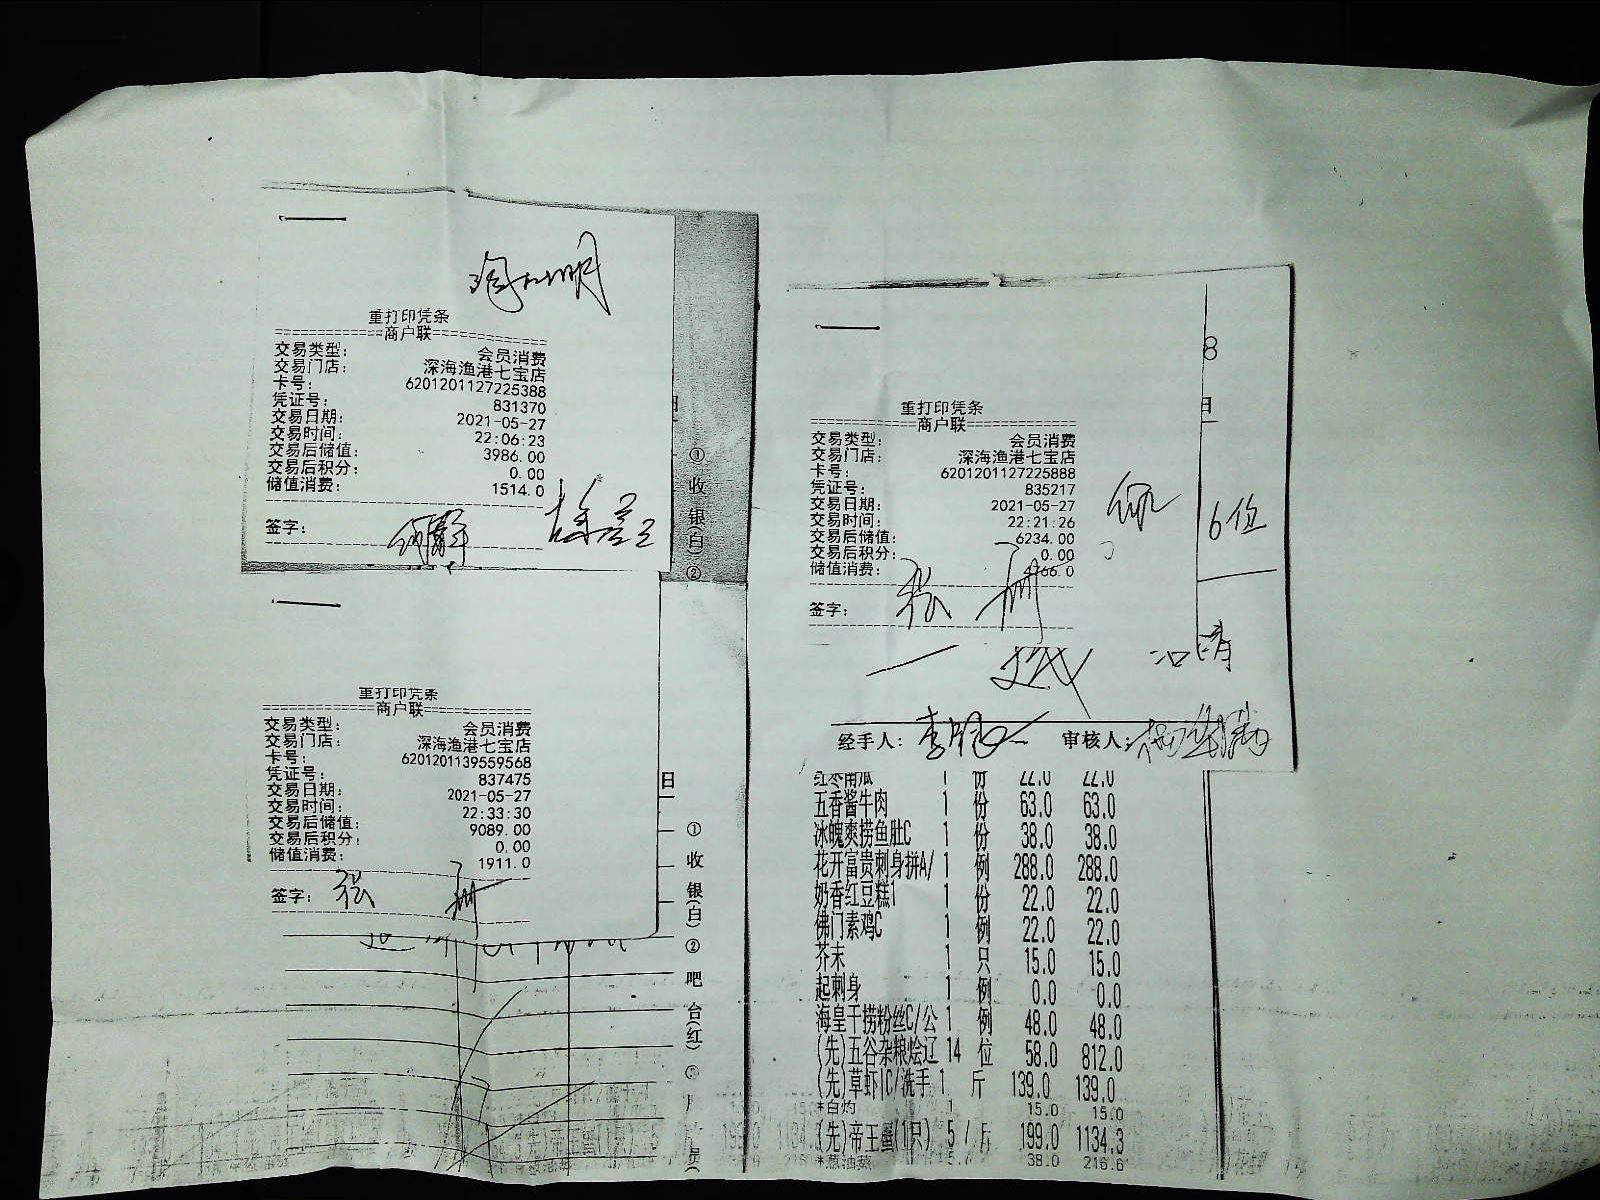 重打印凭条
商户联
交易类型: 会员消费
交易门店: 深海渔港七宝店
卡号: 6201201127225388
凭证号: 831370
交易日期: 2021-05-27
交易时间: 22:06:23
交易后储值: 3986.00
交易后积分: 0.00
储值消费: 1514.0
签字:
①收银(白)②
重打印凭条
商户联
交易类型: 会员消费
交易门店: 深海渔港七宝店
卡号: 6201201139559568
凭证号: 837475
交易日期: 2021-05-27
交易时间: 22:33:30
交易后储值: 9089.00
交易后积分: 0.00
储值消费: 1911.0
签字: 张
日
①收银(白)②吧台(红)③
8
日
重打印凭条
商户联
交易类型: 会员消费
交易门店: 深海渔港七宝店
卡号: 6201201127225888
凭证号: 835217
交易日期: 2021-05-27
交易时间: 22:21:26
交易后储值: 6234.00
交易后积分: 0.00
储值消费: 66.0
签字: 张
6位
经手人: 李 审核人:
红枣南瓜 1 份 22.0 22.0
五香酱牛肉 1 份 63.0 63.0
冰魄爽捞鱼肚C 1 份 38.0 38.0
花开富贵刺身拼A/ 1 例 288.0 288.0
奶香红豆糕1 1 份 22.0 22.0
佛门素鸡C 1 例 22.0 22.0
芥末 1 只 15.0 15.0
起刺身 1 例 0.0 0.0
海皇干捞粉丝C/公 1 例 48.0 48.0
(先)五谷杂粮烩辽 14 位 58.0 812.0
(先)草虾IC/洗手 1 斤 139.0 139.0
*白灼 1 15.0 15.0
(先)帝王蟹(1只) 5 / 斤 199.0 1134.3
*葱油蒸 5. 38.0 216.6